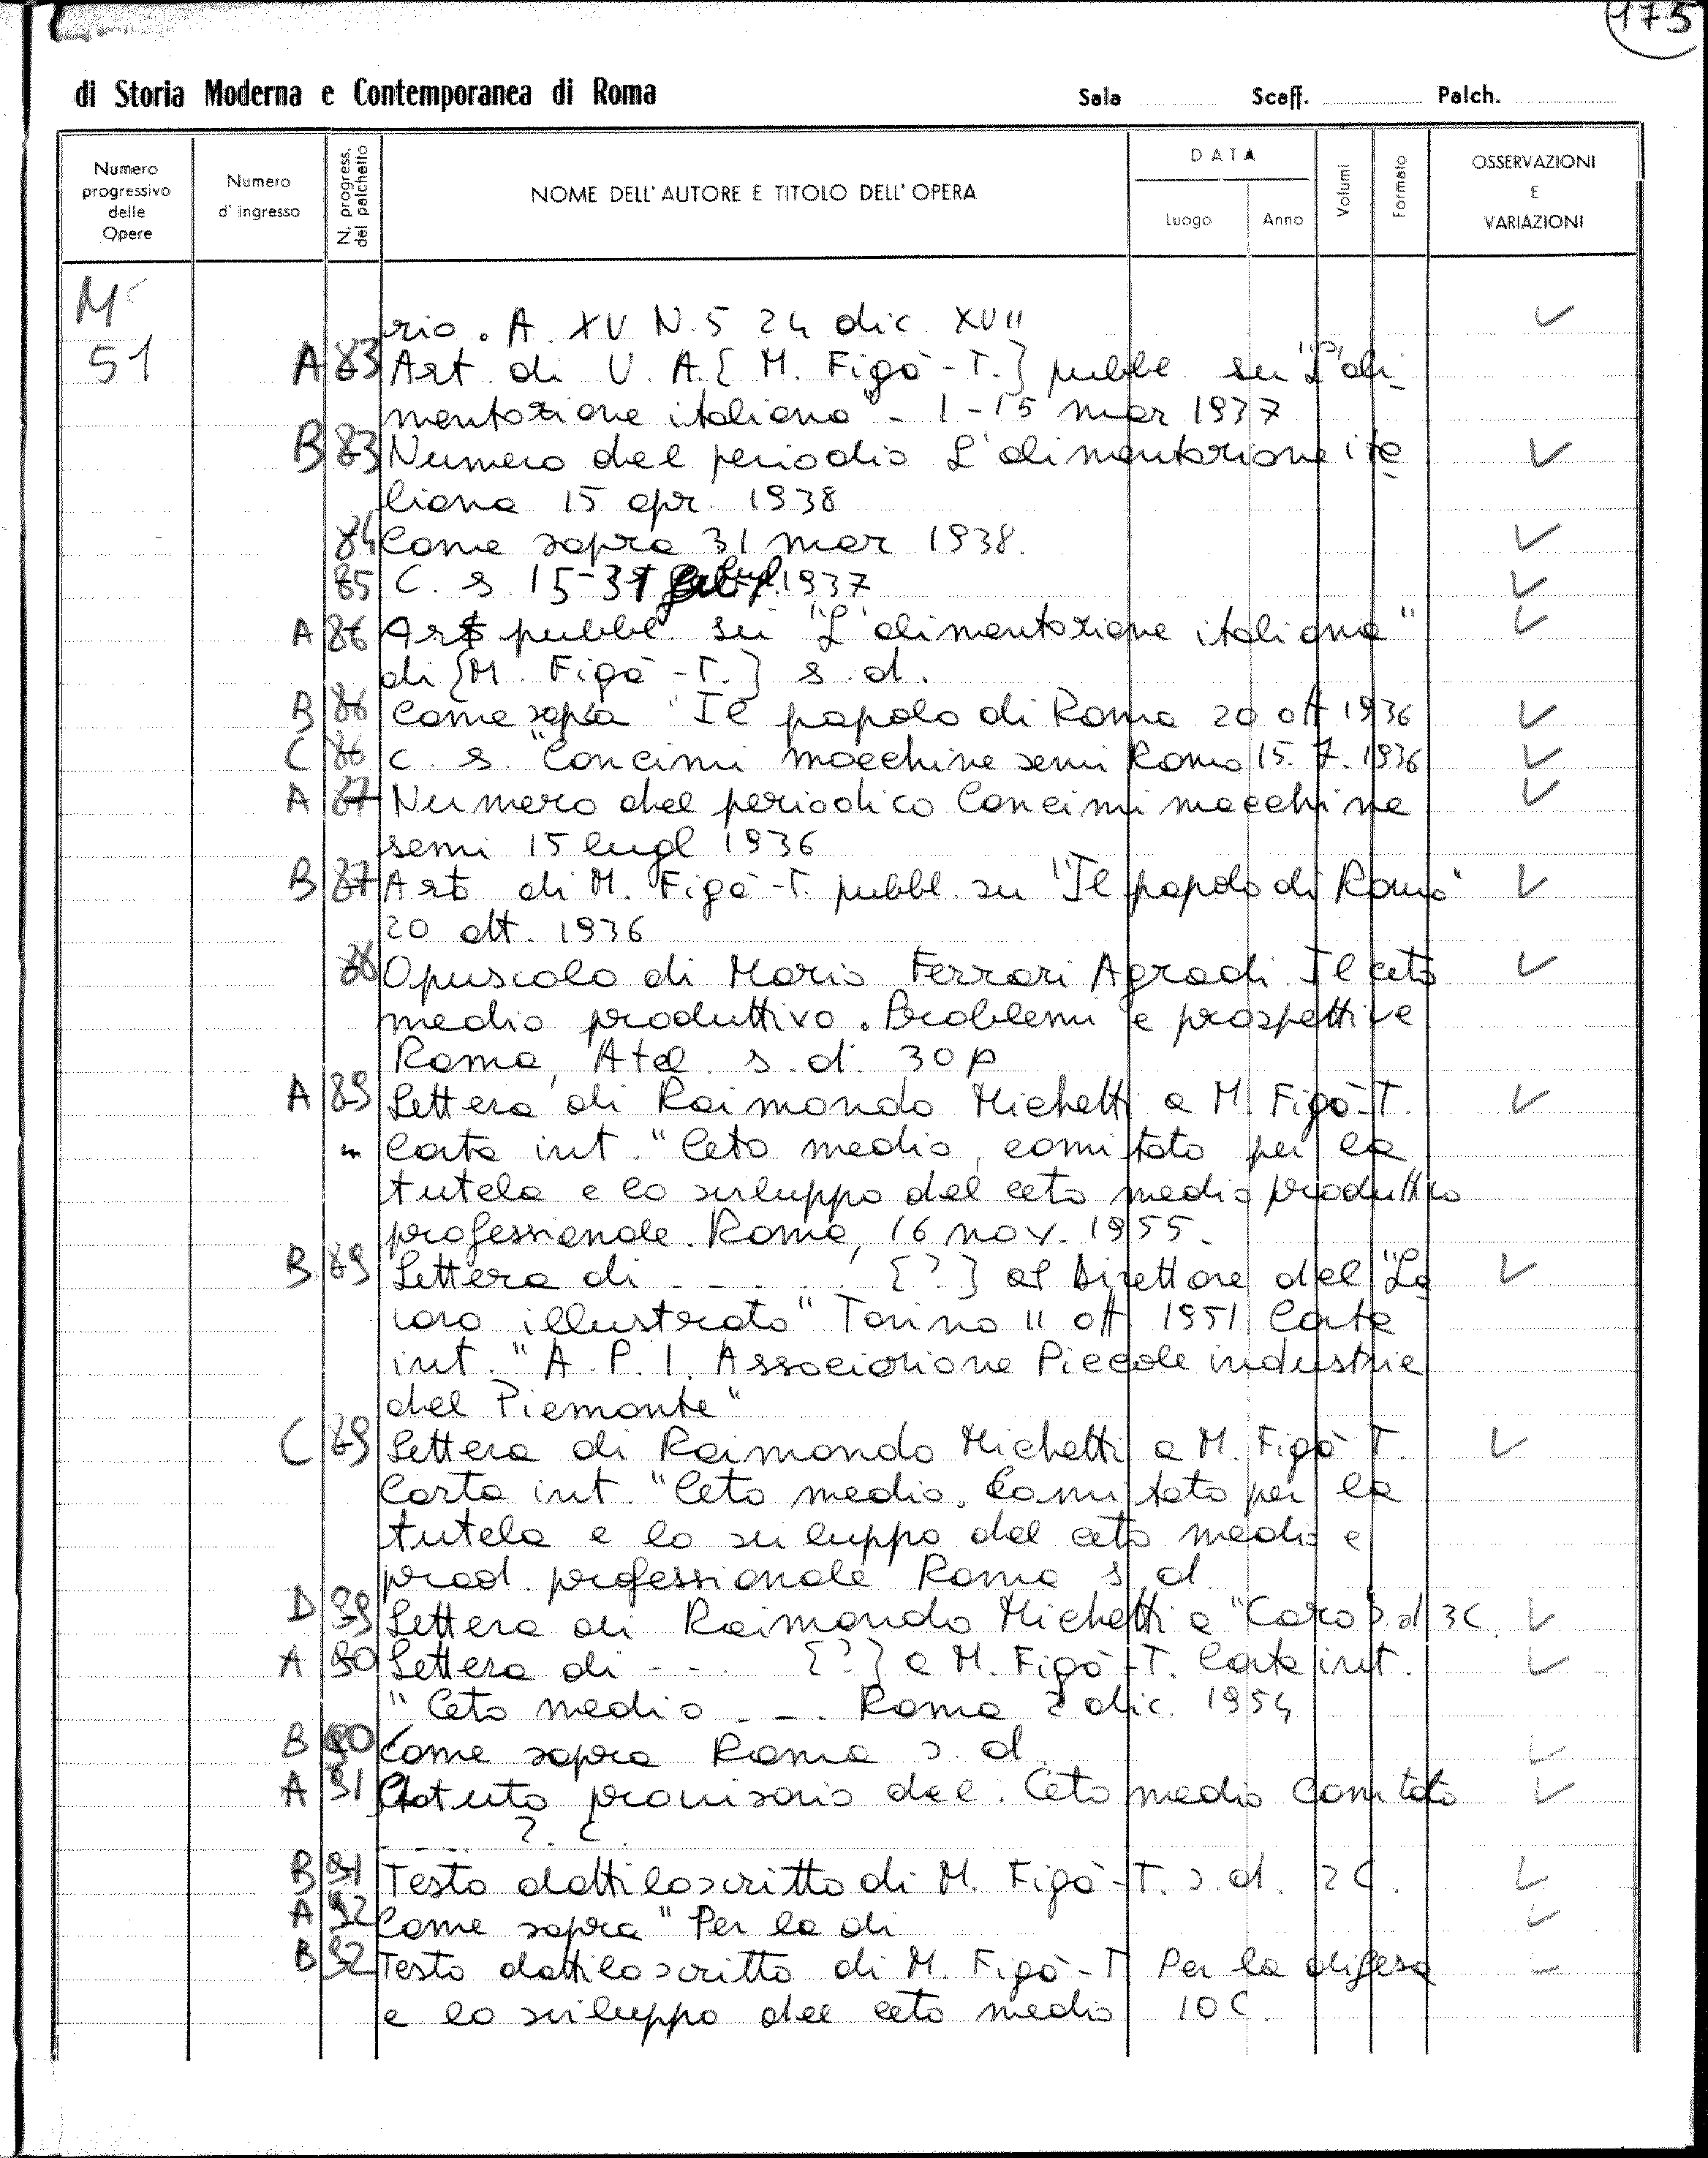 175
di Storia Moderna e Contemporanea di Roma Sala Scaff. Palch.
Numero progressivo delle Opere
Numero d'ingresso
N. progress. del palchetto
NOME DELL'AUTORE E TITOLO DELL'OPERA
DATA
Luogo Anno
Volumi
Formato
OSSERVAZIONI E VARIAZIONI
M
51
rio. A XV N. 5 24 dic. XVII
A 83 Art. di V. A. [M. Figà-T.] pubbl. su "L'ali-
mentazione italiana" - 1-15 mar 1937
B 83 Numero del periodio L'alimentazione ita
liana 15 apr. 1938
84 Come sopra 31 mar 1938.
85 C. s. 15-31 1937
A 86 Art pubbl. su "L'alimentazione italiana"
di [M. Figà-T.] s.d.
B 86 Come sopra "Il popolo di Roma 20 ott 1936
C 86 c. s. "Concimi macchine semi Roma 15.7.1936
A 87 Numero del periodico Concimi macchine
semi 15 lugl 1936
B 87 Art di M. Figà-T. pubbl. su "Il popolo di Roma"
20 ott. 1936
88 Opuscolo di Mario Ferrari Agradi Il ceto
medio produttivo. Problemi e prospettive
Roma, Atel s.d. 30 p
A 89 Lettera di Raimondo Michetti a M. Figà-T.
Carta int. "Ceto medio, comitato per la
tutela e lo sviluppo del ceto medio produttivo
professionale. Roma, 16 nov. 1955.
B 89 Lettera di - - - . [?] al Direttore del "La
voro illustrato" Torino 11 ott 1951 Carta
int. "A.P.I. Associazione Piccole industrie
del Piemonte"
C 89 Lettera di Raimondo Michetti a M. Figà T.
Carta int. "Ceto medio. Comitato per la
tutela e lo sviluppo del ceto medio e
prod. professionale Roma s.d.
D 89 Lettera di Raimondo Michetti a "Caro" s.d 3C.
A 90 Lettera di - - . [?] a M. Figà-T. Carta int.
"Ceto medio - - . Roma 2 dic. 1954
B 90 Come sopra Roma s.d.
A 91 Statuto provvisorio del. Ceto medio Comitato
- - - - 2. c.
B 91 Testo dattiloscritto di M. Figà-T. s.d. 2 C.
A 92 Come sopra "Per la di
B 92 Testo dattiloscritto di M. Figà-T Per la difesa
e lo sviluppo del ceto medio 10 C.